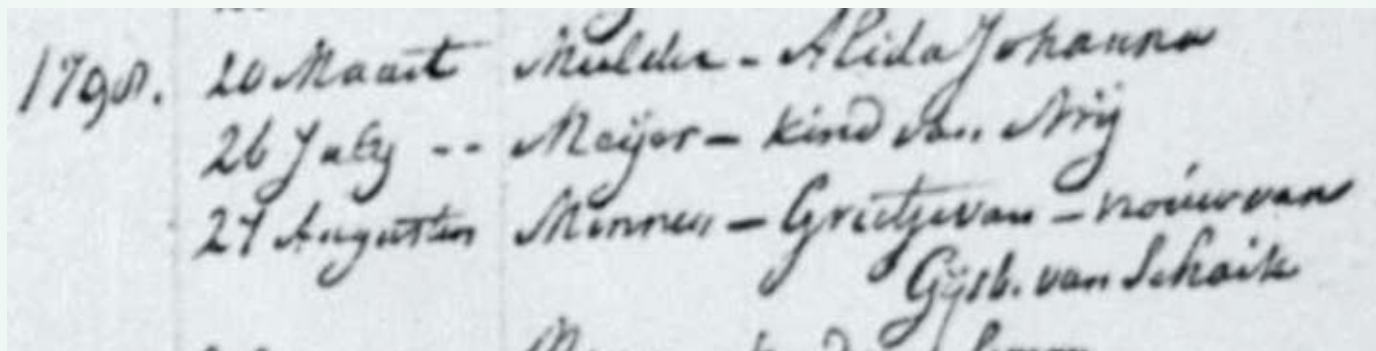 1798. 20 Maart Mulder - Alida Johanna
26 July -- Meijer - kind van
27 Augustus - Grietje van - vrouw van
Gijsb. van Schaik